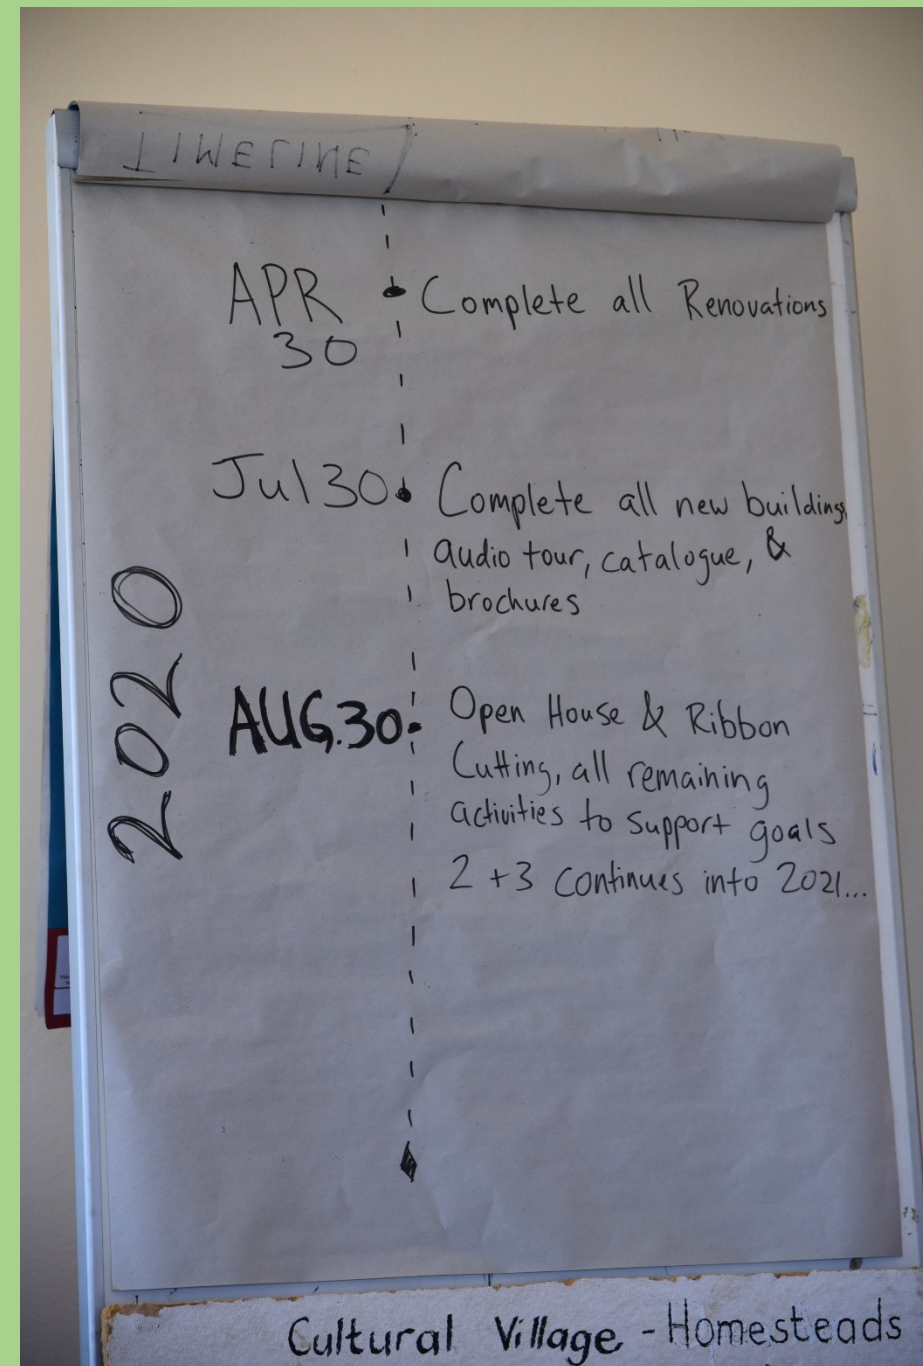 TIMELINE
APR
30
Complete all Renovations
Jul 30
Complete all new buildings,
audio tour, catalogue, &
brochures
2020
AUG.30
Open House & Ribbon
Cutting, all remaining
activities to support goals
2 + 3 continues into 2021...
Cultural Village - Homesteads